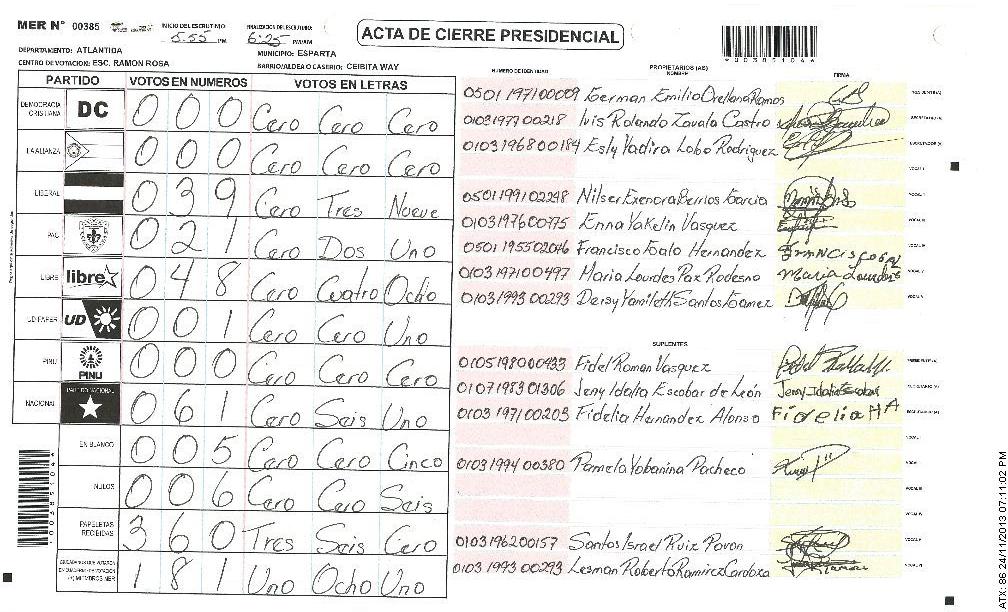 MER Nº 00385
INICIO DEL ESCRUTINIO
5:55 PM
FINALIZACION DEL ESCRUTINIO:
6:25 PM/AM
ACTA DE CIERRE PRESIDENCIAL
*00385104*
DEPARTAMENTO: ATLANTIDA
MUNICIPIO: ESPARTA
CENTRO DE VOTACION: ESC. RAMON ROSA
BARRIO/ALDEA O CASERIO: CEIBITA WAY
PARTIDO VOTOS EN NUMEROS VOTOS EN LETRAS
DEMOCRACIA CRISTIANA DC 0 0 0 Cero Cero Cero
LA ALIANZA 0 0 0 Cero Cero Cero
LIBERAL 0 3 9 Cero Tres Nueve
PAC 0 2 1 Cero Dos Uno
LIBRE libre 0 4 8 Cero Cuatro Ocho
UD/FAPER UD 0 0 1 Cero Cero Uno
PINU PINU 0 0 0 Cero Cero Cero
NACIONAL PARTIDO NACIONAL 0 6 1 Cero Seis Uno
EN BLANCO 0 0 5 Cero Cero Cinco
NULOS 0 0 6 Cero Cero Seis
PAPELETAS RECIBIDAS 3 6 0 Tres Seis Cero
CIUDADANOS QUE VOTARON EN CUADERNO DE VOTACION (+) MIEMBROS MER 1 8 1 Uno Ocho Uno
NUMERO DE IDENTIDAD PROPIETARIOS (AS) NOMBRE FIRMA
0501197100009 German Emilio Orellana Ramos PRESIDENTE(A)
0103197700218 Luis Rolando Zavala Castro SECRETARIO(A)
0103196800184 Esly Yadira Lobo Rodriguez ESCRUTADOR(A)
VOCAL I
0501199102248 Nilser Exenora Berrios Garcia VOCAL II
0103197600775 Enna Yakelin Vasquez VOCAL III
0501195502046 Francisco Galo Hernandez VOCAL IV
0103197100497 Maria Lourdes Paz Rodesno Maria Lourdes VOCAL V
0103199300293 Deisy Yamileth Santos Gomez
SUPLENTES
0105198000433 Fidel Roman Vasquez PRESIDENTE(A)
0107198301306 Jeny Idalia Escobar de León Jeny Idalia Escobar SECRETARIO(A)
0103197100203 Fidelia Hernandez Alonso Fidelia HA ESCRUTADOR(A)
VOCAL I
0103199400380 Pamela Yobanina Pacheco
VOCAL III
VOCAL IV
0103196200157 Santos Israel Ruiz Pavon VOCAL V
0103199300293 Lesman Roberto Ramirez Cardoza VOCAL VI
*00385104*
ATX: 86 24/11/2013 07:11:02 PM